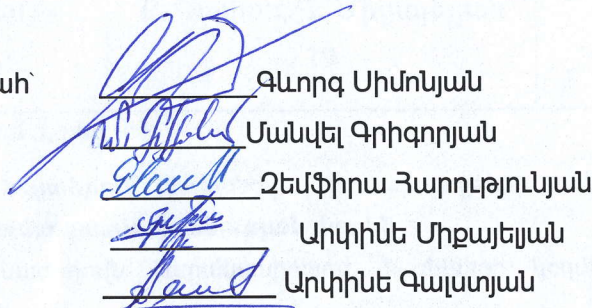 ահ՝ Գևորգ Սիմոնյան
Մանվել Գրիգորյան
Զեմֆիրա Հարությունյան
Արփինե Միքայելյան
Արփինե Գալստյան